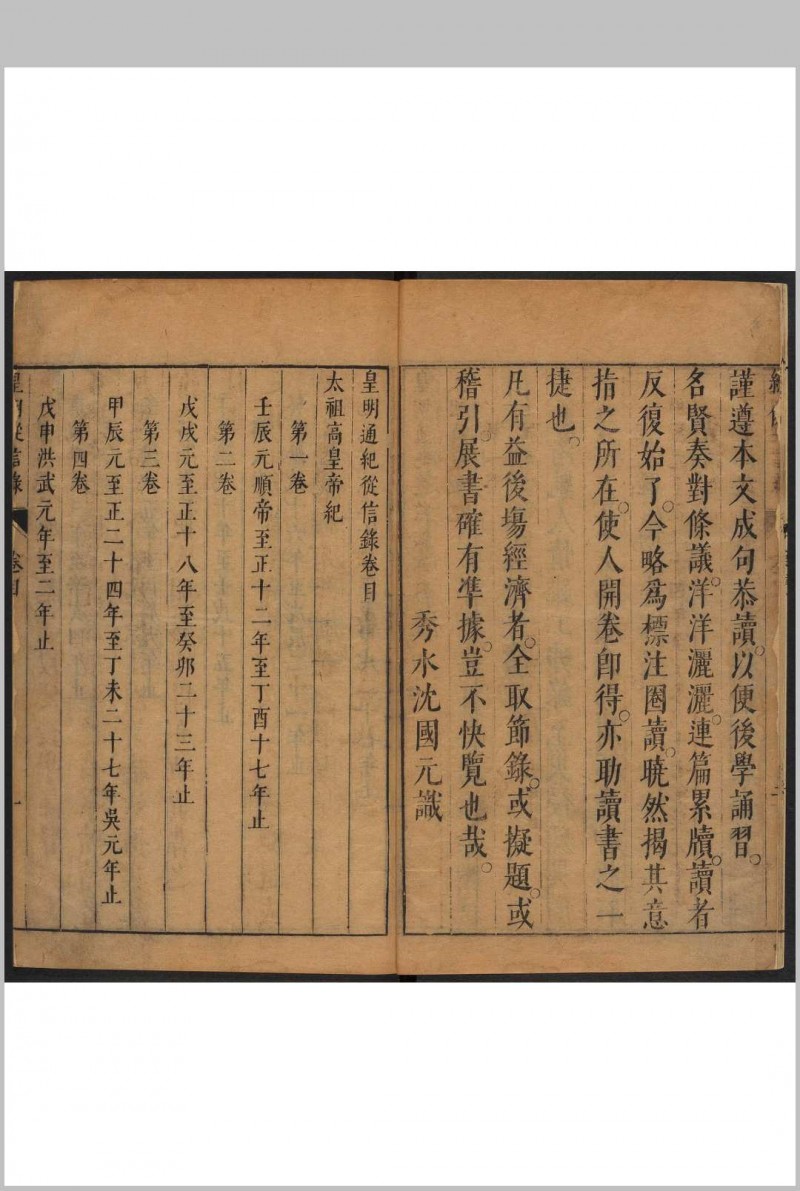 謹遵本文成句恭讀。以便後學誦習。
名賢奏對條議。洋洋灑灑。連篇累牘。讀者
反復始了。今略爲標注圈讀。曉然揭其意
指之所在。使人開卷卽得。亦助讀書之一
捷也。
凡有益後塲經濟者。全取節錄。或擬題。或
稽引。展書確有準據。豈不快覽也哉。
秀水沈國元識
皇明通紀從信錄卷目
太祖高皇帝紀
第一卷
壬辰元順帝至正十二年至丁酉十七年止
第二卷
戊戌元至正十八年至癸卯二十三年止
第三卷
甲辰元至正二十四年至丁未二十七年吳元年止
第四卷
戊申洪武元年至二年止
皇明從信錄
卷目
一